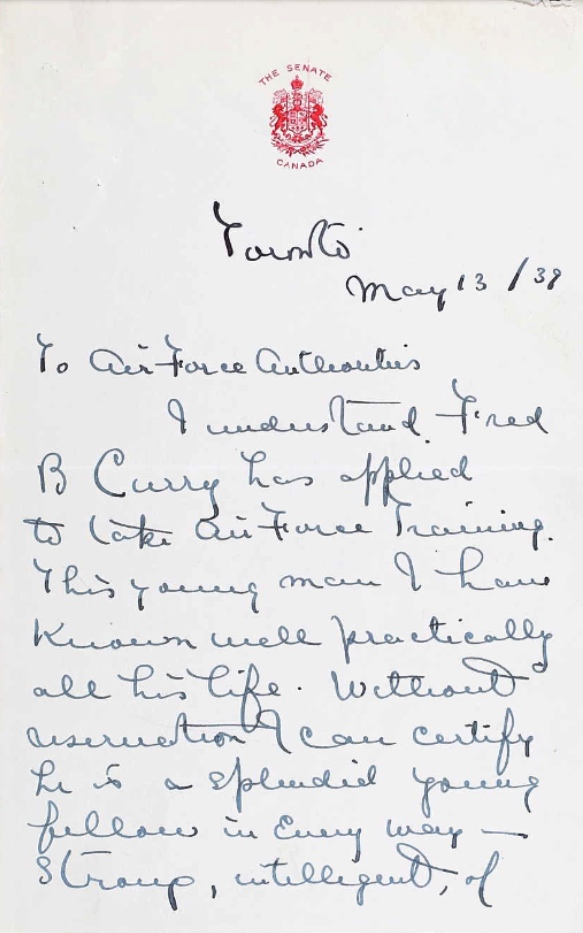 THE SENATE
CANADA
Toronto
May 13 / 39
To Air Force Authorities
I understand Fred
B Curry has applied
to take Air Force Training.
This young man I have
known well practically
all his life. Without
reservation I can certify
he is a splendid young
fellow in every way —
Strong, intelligent, of